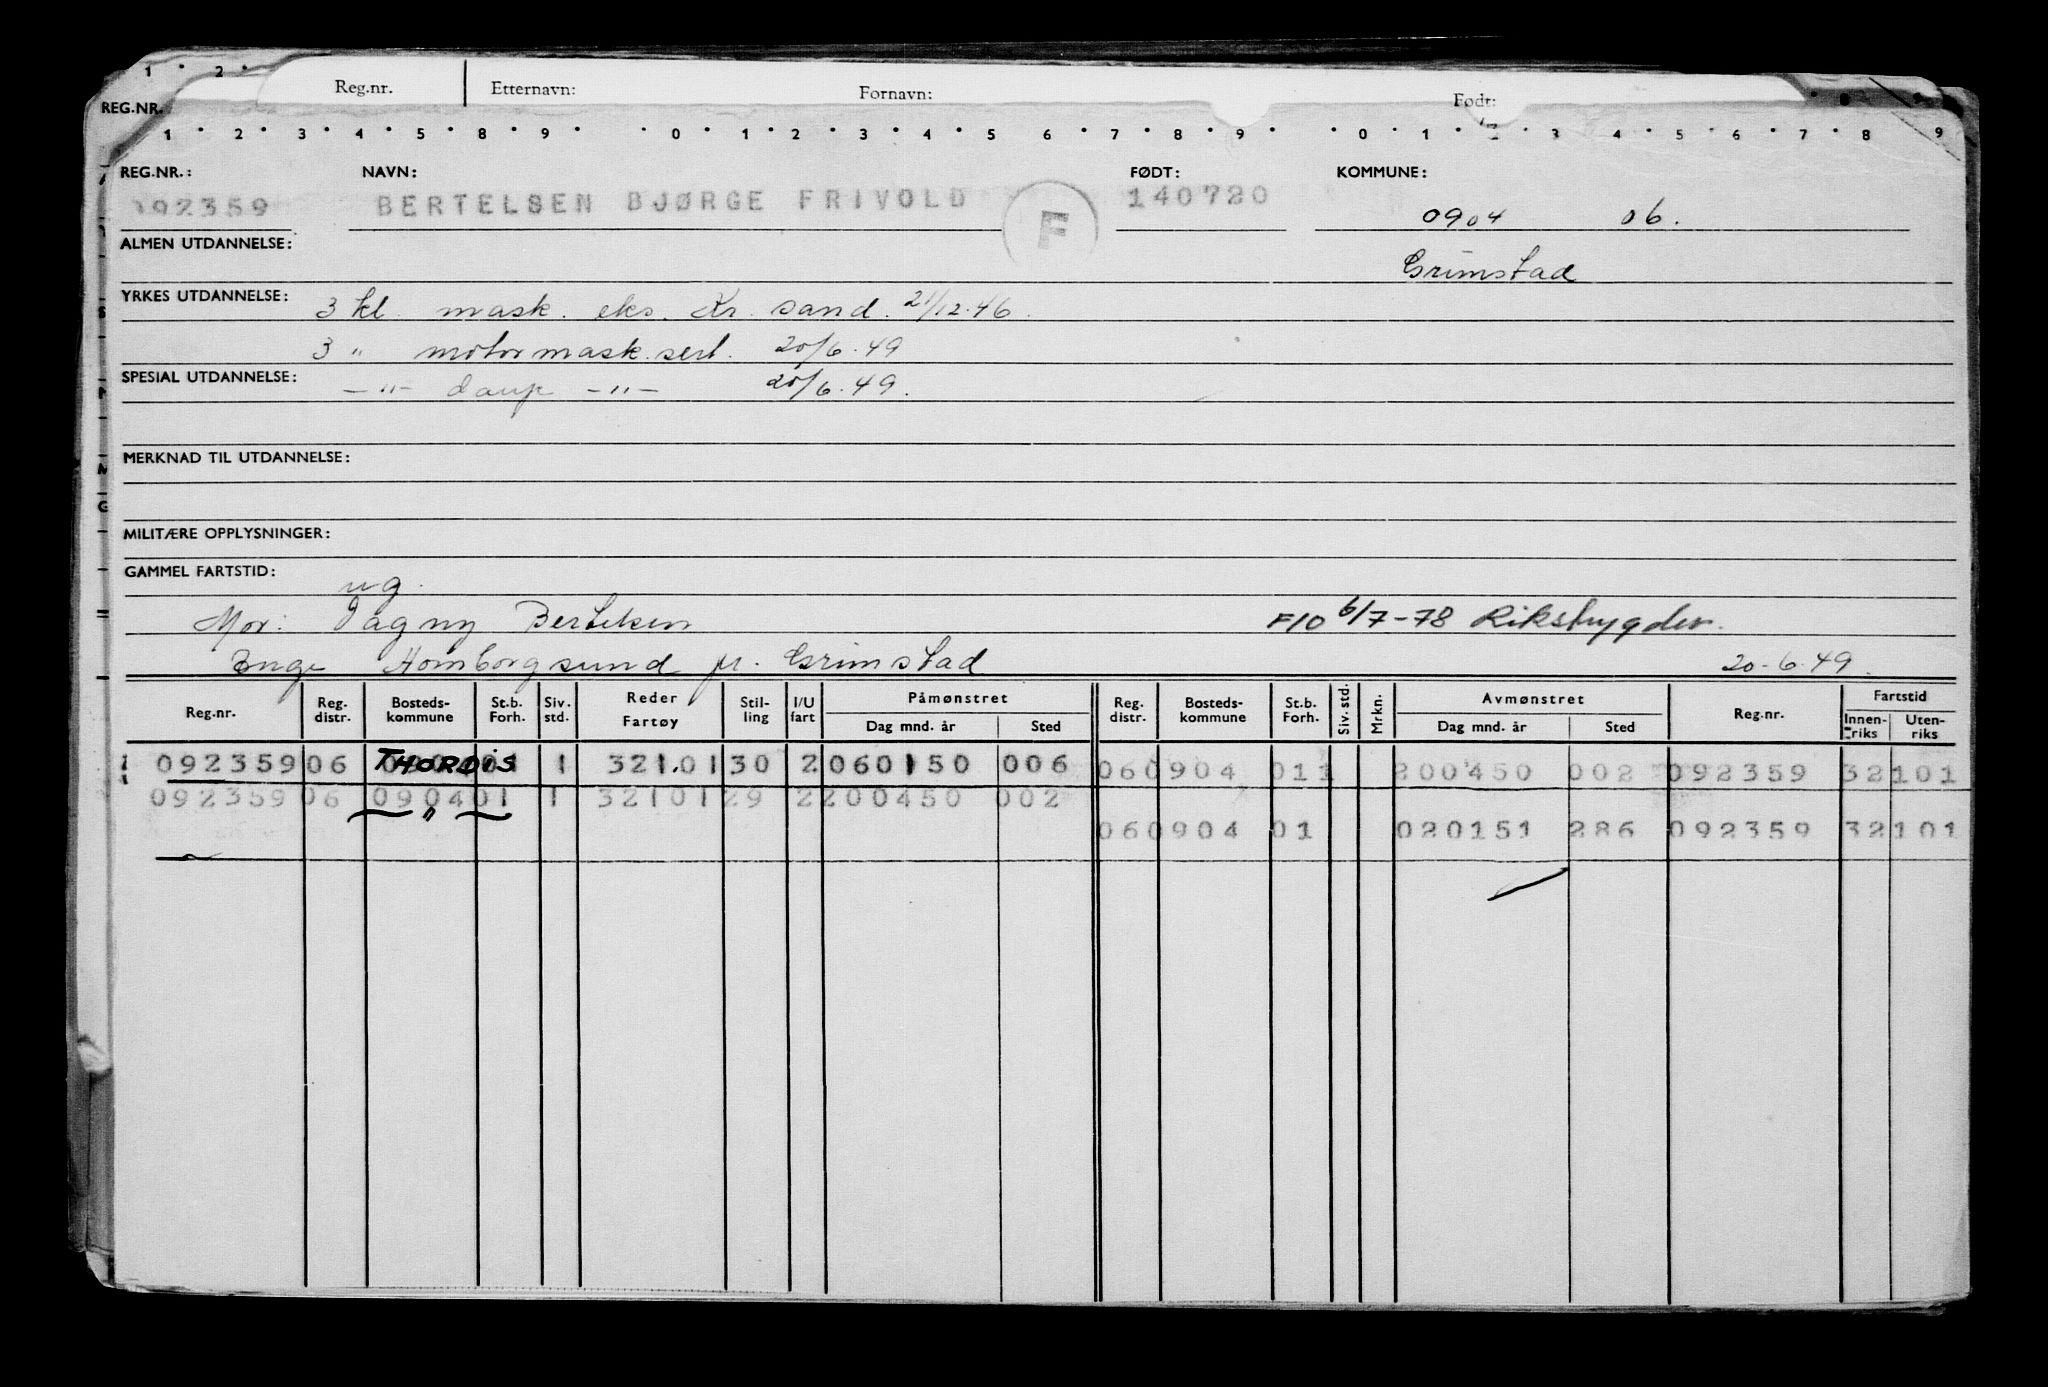 1 · 2 ·
Reg.nr. Etternavn: Fornavn: Født:
REG.NR.
1 · 2 · 3 · 4 · 5 · 8 · 9 · · 0 · 1 · 2 · 3 · 4 · 5 6 · 7 · 8 · 9 · · 0 · 1 · 2 · 3 4 · 5 · 6 · 7 · 8 9
REG.NR.: NAVN: FØDT: KOMMUNE:
092359 BERTELSEN BJØRGE FRIVOLD F 140720 0904 06.
ALMEN UTDANNELSE: Grimstad
YRKES UTDANNELSE: 3 kl. mask. eks. Kr. sand. 21/12.46.
3 " motormask.sert. 20/6.49
SPESIAL UTDANNELSE: —"— damp —"— 20/6.49.
MERKNAD TIL UTDANNELSE:
MILITÆRE OPPLYSNINGER:
GAMMEL FARTSTID: ug.
Mor: Dagny Bertelsen F10 6/7-78 Riksbygden.
Homborgsund pr. Grimstad 20-6.49.
Reg.nr. Reg. distr. Bosteds-kommune St.b. Forh. Siv. std. Reder Fartøy Stil-ling I/U fart Påmønstret Dag mnd. år Sted Reg. distr. Bosteds-kommune St.b. Forh. Siv. std. Mrkn. Avmønstret Dag mnd. år Sted Reg.nr. Fartstid Innen-riks Uten-riks
092359 06 THORDIS 1 321.01 30 2 060150 006 06 0904 011 200450 002 092359 32101
092359 06 0904 01 1 32101 29 2 200450 002
— " —
06 0904 01 020151 286 092359 32101